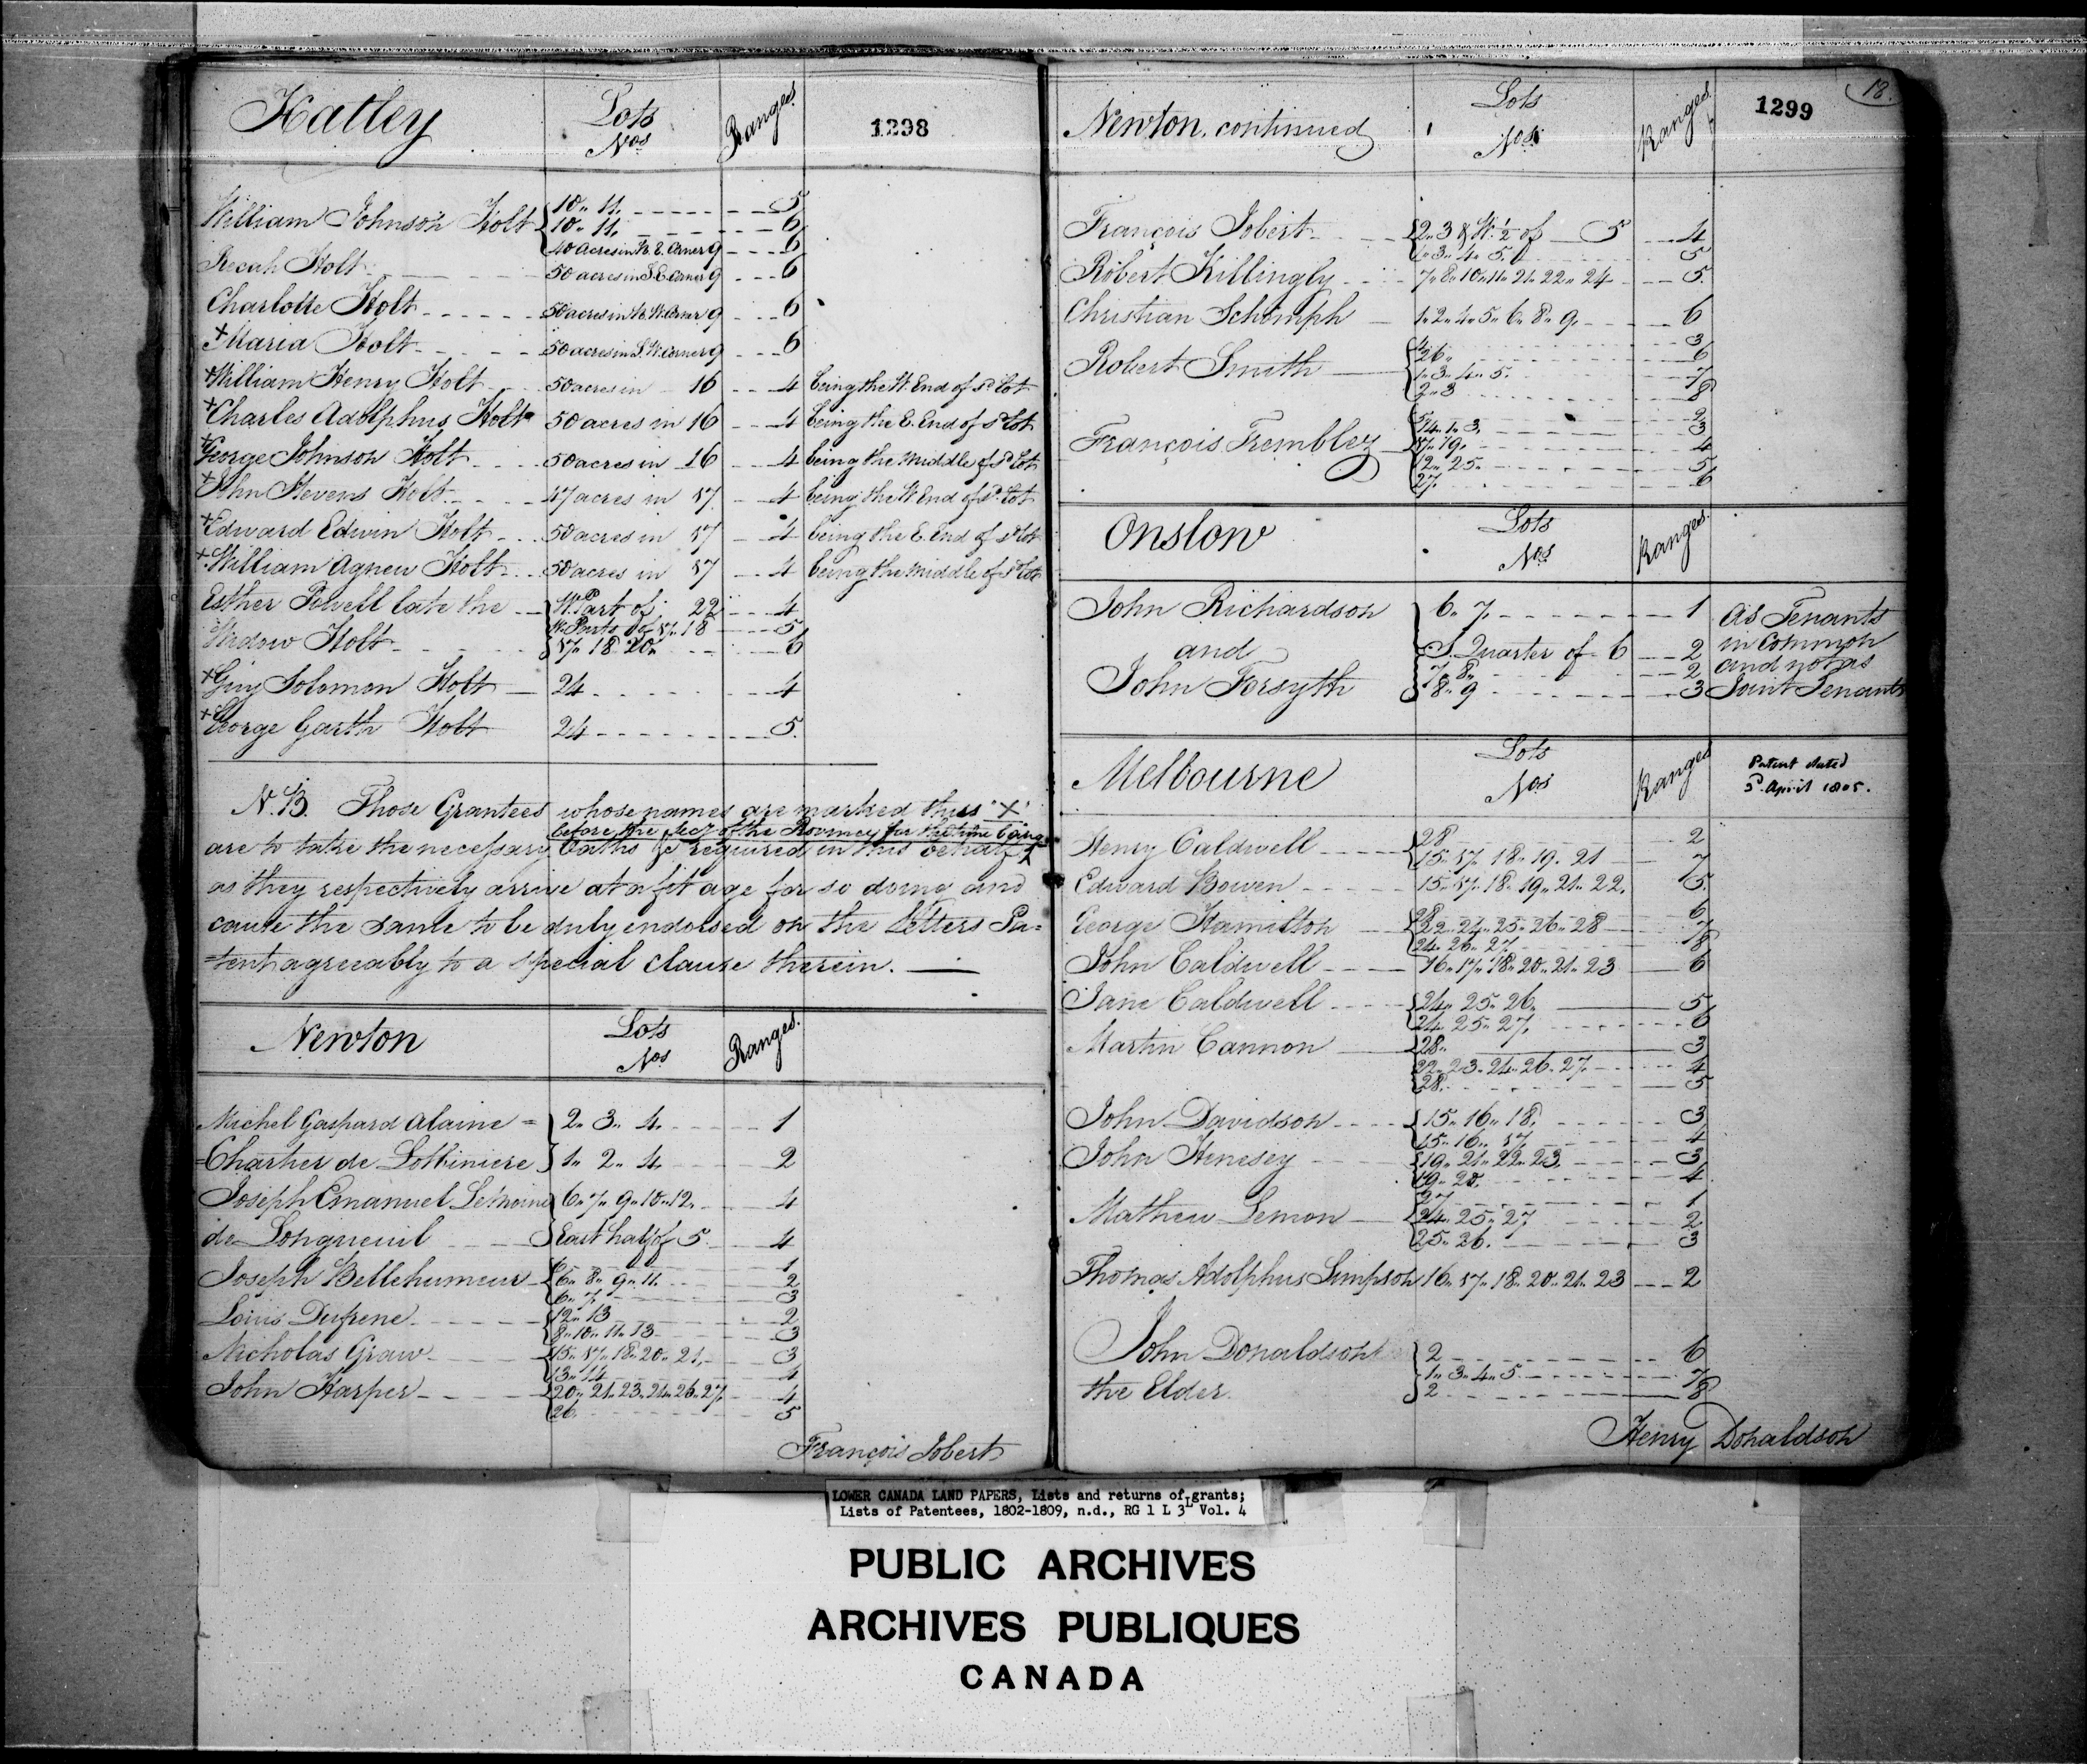 Hatley Lots Nos Ranges. 1298
William Johnson Holt 10„ 11. 5
10„ 11. 6
40 acres in N. E. Corner 9 6
Recah Holt 50 acres in S. E. Corner 9 6
Charlotte Holt 50 acres in N. W. Corner 9 6
+Maria Holt 50 acres in S. W. Corner 9 6
+William Henry Holt 50 acres in 16 4 being the W. End of sd. Lot
+Charles Adolphus Holt 50 acres in 16 4 being the E. End of sd Lot
+George Johnson Holt 50 acres in 16 4 being the middle of sd Lot
+John Stevens Holt 47 acres in 17 4 being the W End of sd. Lot
+Edward Edwin Holt 50 acres in 17 4 being the E. End of sd Lot
+William Agnew Holt 50 acres in 17 4 being the middle of sd Lot
Esther Powell late the W. Part of 22 4
W. Parts of 17„ 18 5
Widow Holt 17„ 18„ 20„ 6
+Guy Solomon Holt 24 4
+George Garth Holt 24 5.
N.B. Those Grantees whose names are marked thus "+"
before the Secy of the Province for the time being
are to take the necessary Oaths &c required in this behalf
as they respectively arrive at a fit age for so doing and
cause the same to be duly endorsed on the Letters Pa=
=tent agreeably to a special clause therein.
Newton Lots Nos Ranges.
Michel Gaspard Alaine = 2„ 3„ 4. 1
=Chartier de Lotbiniere 1„ 2„ 4. 2
Joseph Emanuel Lemoine 6„ 7„ 9„ 10„ 12. 4
de Longueuil East half of 5 4
Joseph Bellehumeur 6. 1
6„ 8„ 9„ 11. 2
6„ 7. 3
Louis Dufrene 12„ 13 2
8„ 10„ 11„ 13 3
Nicholas Graw 15„ 17„ 18„ 20„ 21. 3
13„ 14 4
John Harper 20„ 21„ 23„ 24„ 26„ 27. 4
26. 5
François Jobert
18.
Newton, continued Lots Nos. Ranges. 1299
François Jobert 2„ 3 & W. ½ of 5 4
1„ 3„ 4„ 5. 5
Robert Killingly 7„ 8„ 10„ 11„ 21„ 22„ 24 5.
Christian Schomph 1„ 2„ 4„ 5„ 6„ 8„ 9. 6
Robert Smith 4. 3
26„ 6
1„ 3„ 4„ 5. 7
2„ 3 8
François Trembley 2
14„ 1„ 3. 3
17„ 19. 4
12„ 25. 5
27. 6
Onslow Lots Nos Ranges.
John Richardson 6„ 7. 1 as Tenants
and S. Quarter of 6 2 in Common
7„ 8„ 2 and not as
John Forsyth 8„ 9 3 Joint Tenants
Melbourne Lots Nos Ranges Patent dated
3d. April 1805.
Henry Caldwell 28 2
15„ 17„ 18„ 19„ 21 7
Edward Bowen 15„ 17„ 18„ 19„ 21„ 22. 5.
George Hamilton 28 6
22„ 24„ 25„ 26„ 28 7
24„ 26„ 27 8
John Caldwell 16„ 17„ 18„ 20„ 21„ 23 6
Jane Caldwell 24„ 25„ 26. 5
24„ 25„ 27. 6
Martin Cannon 28„ 3
22„ 23„ 24„ 26„ 27. 4
28. 5
John Davidson 15„ 16„ 18. 3
15„ 16„ 17. 4
John Henesey 19„ 21„ 22„ 23. 3
19„ 20. 4
Mathew Lemon 27 1
24„ 25„ 27 2
25„ 26. 3
Thomas Adolphus Simpson 16„ 17„ 18„ 20„ 21„ 23 2
John Donaldson 2 6
1„ 3„ 4„ 5. 7
the Elder. 2 8
Henry Donaldson
LOWER CANADA LAND PAPERS, Lists and returns of grants;
Lists of Patentees, 1802-1809, n.d., RG 1 L 3L Vol. 4
PUBLIC ARCHIVES
ARCHIVES PUBLIQUES
CANADA